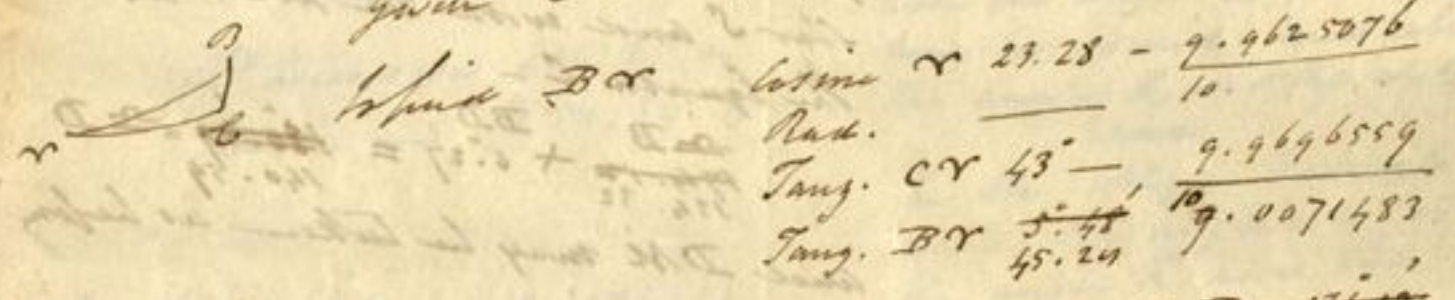 given
B
To find B♈ Cosine ♈ 23.28 - 9.9625076
C Rad. — 10.
♈ Tang. C♈ 43° — 9.9696559
Tang. B♈ 5°.48' 10 9.0071483
45.28